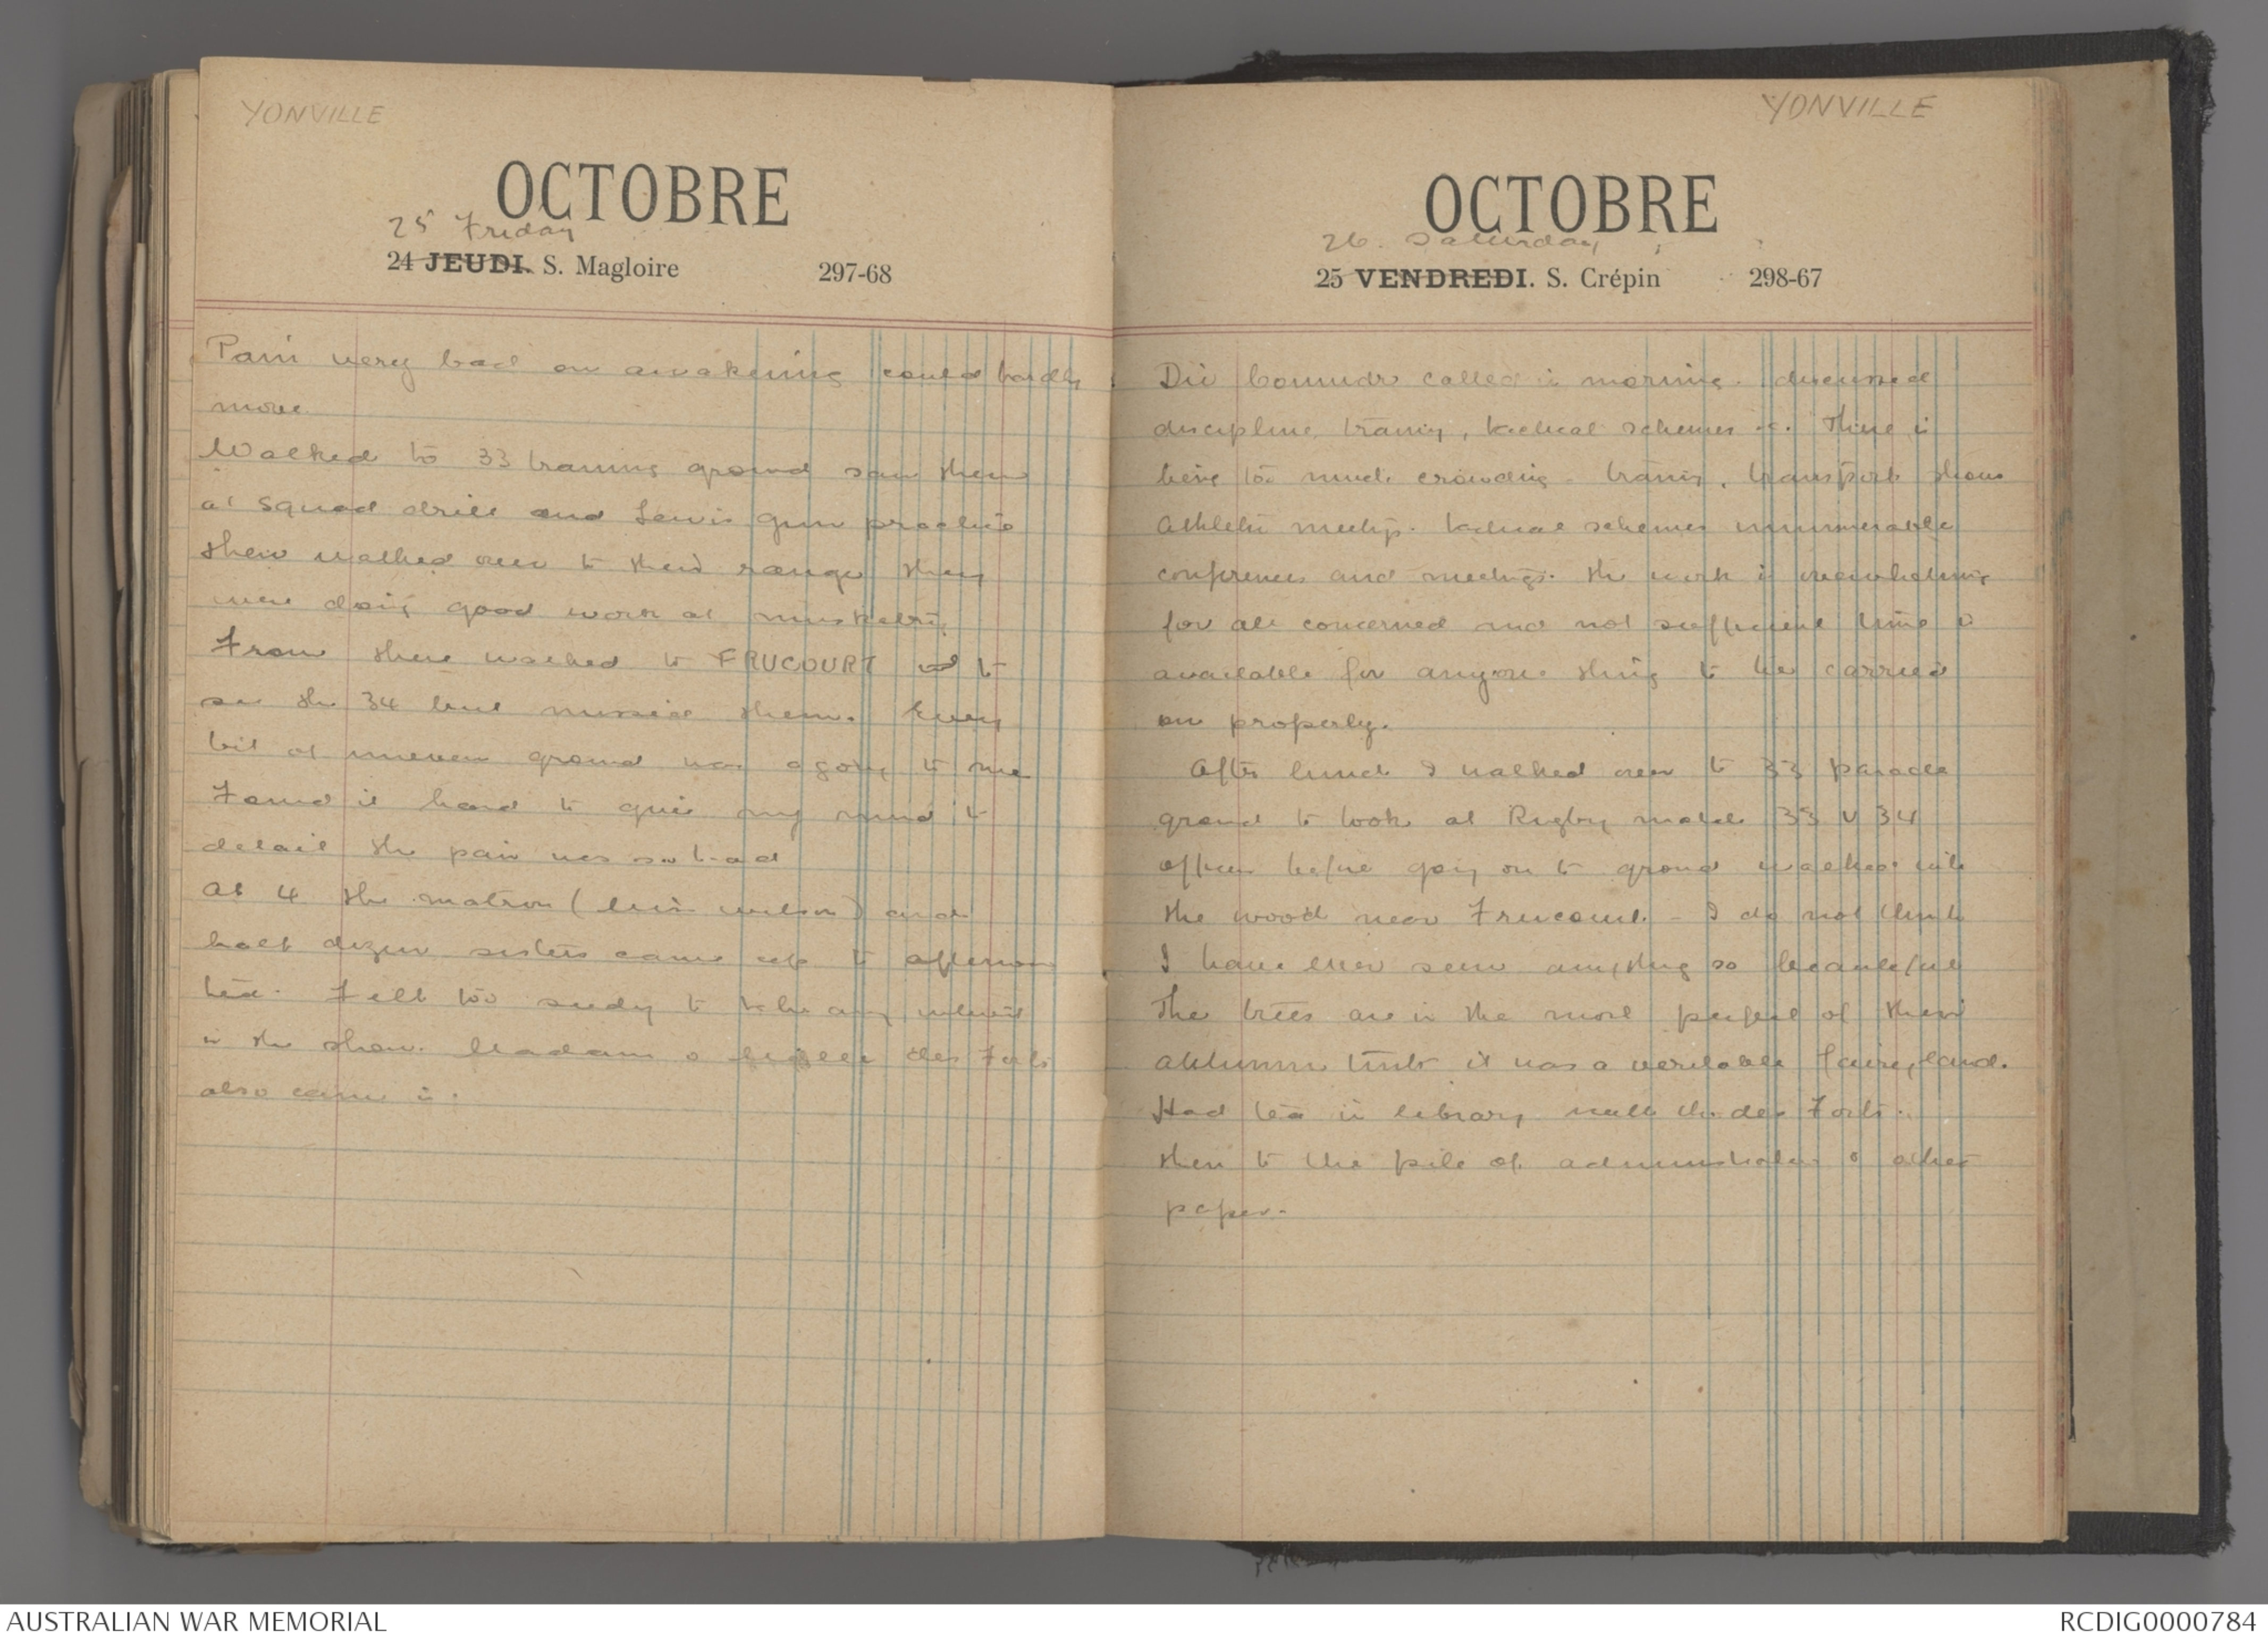 YONVILLE
OCTOBRE
25 Friday
24 JEUDI. S. Magloire 297-68
Pain very bad on awakening could hardly
move.
Walked to 33 training ground saw them
at squad drill and Lewis gun practice
then walked over to their range they
were doing good work at musketry.
From there walked to FRUCOURT to
see the 34 but missed them. Every
bit of uneven ground was agony to me
Found it hard to give my mind to
detail the pain was so bad
At 4 the matron ( wilson) and
half dozen sisters came up to afternoon
tea. Felt too seedy to take any interest
in the show. Madam & des Forts
also came in.
YONVILLE
OCTOBRE
26. Saturday
25 VENDREDI. S. Crépin 298-67
Div Commdr called in morning. discussed
discipline, training, tactical schemes &c. There is
being too much crowding. training, transport show
Athletic meetings. tactical schemes innumerable
conferences and meetings. the work is overwhelming
for all concerned and not sufficient time is
available for anyone thing to be carried
on properly.
After lunch I walked over to 33 parade
ground to look at Rugby match 33 v 34
officers before going on to ground walked into
the wood near Frucourt. - I do not think
I have ever seen anything so beautiful
The trees are in the most perfect of their
autumn tints it was a veritable fairyland.
Had tea in library with the des Forts.
then to the pile of administration & other
paper.
AUSTRALIAN WAR MEMORIAL
RCDIG0000784